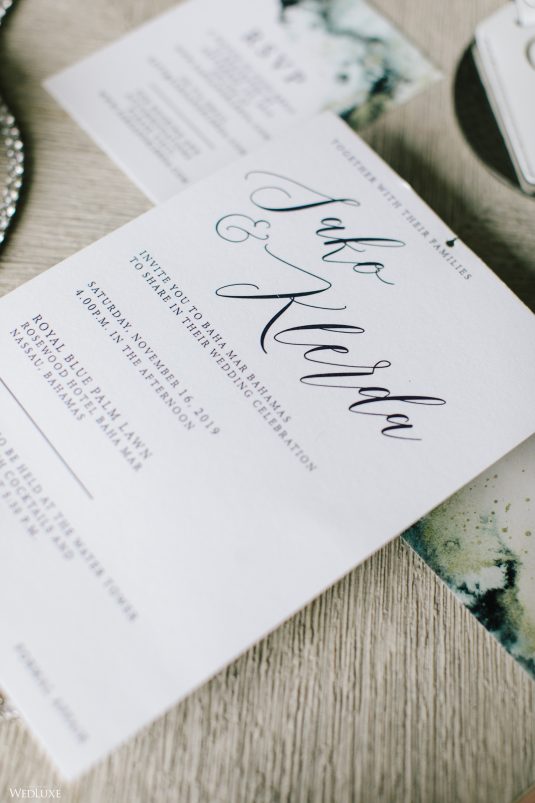 RSVP
TOGETHER WITH THEIR FAMILIES
Sako
& Klerda
INVITE YOU TO BAHA MAR BAHAMAS
TO SHARE IN THEIR WEDDING CELEBRATION
SATURDAY, NOVEMBER 16, 2019
4.00P.M. IN THE AFTERNOON
ROYAL BLUE PALM LAWN
ROSEWOOD HOTEL BAHA MAR
NASSAU, BAHAMAS
TO BE HELD AT THE WATER TOWER
COCKTAILS AND
5:30 P.M.
FORMAL ATTIRE
WEDLUXE